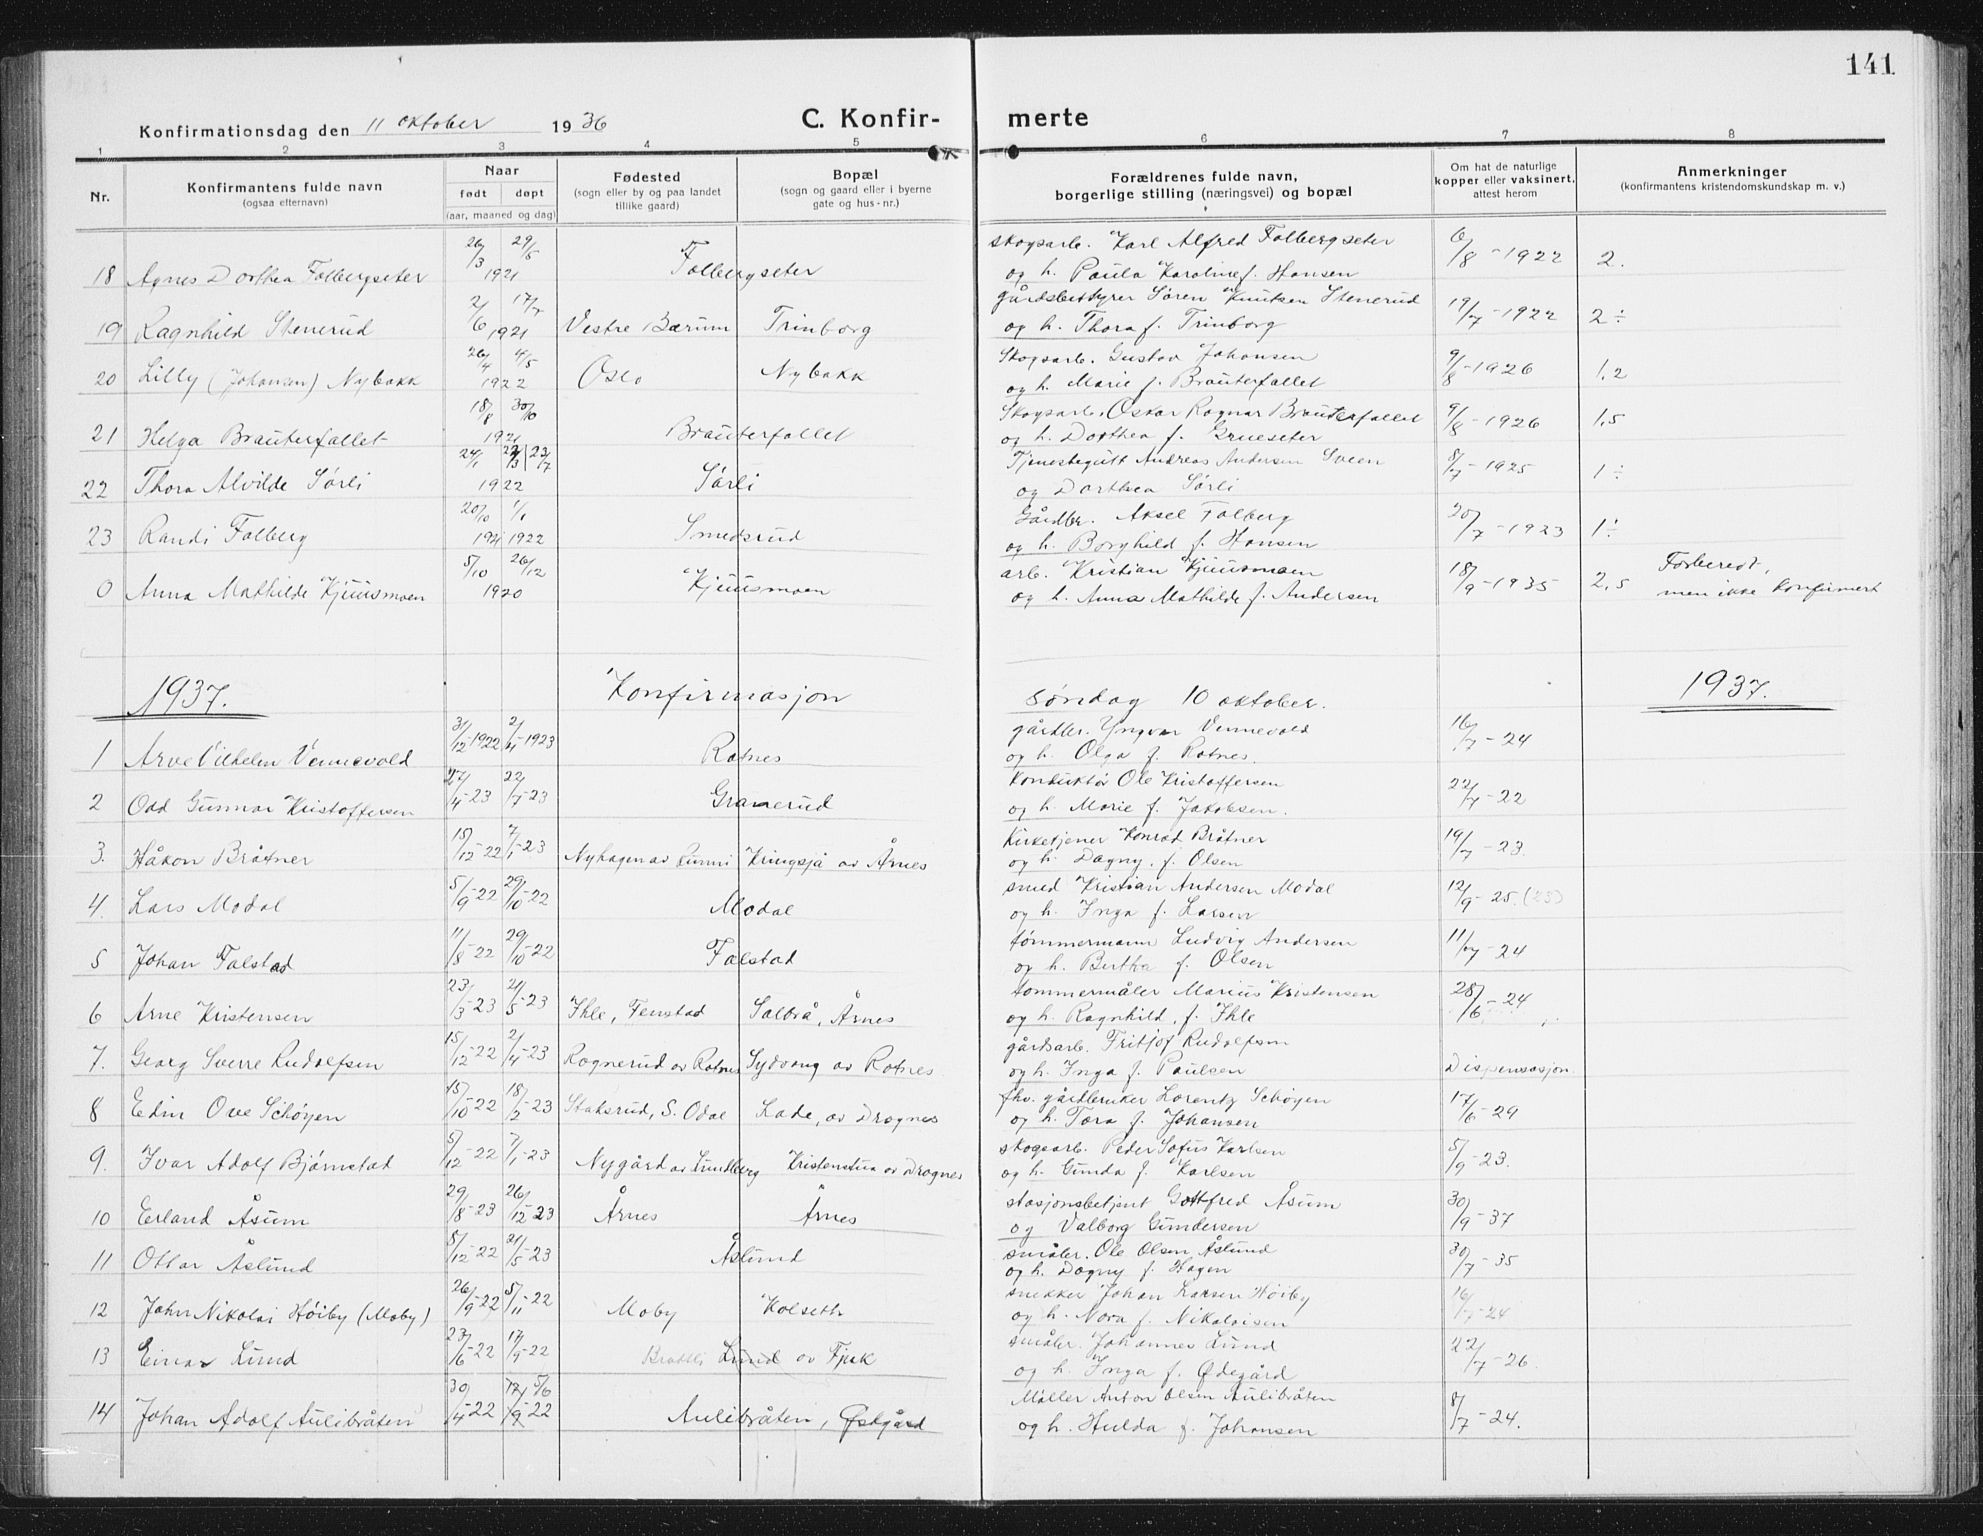 141
Konfirmationsdag den 11 oktober 1936
C. Konfir-merte
1 2 3 4 5 6 7 8
Nr.
Konfirmantens fulde navn
(ogsaa efternavn)
Naar
født døpt
(aar, maaned og dag)
Fødested
(sogn eller by og paa landet
tillike gaard)
Bopæl
(sogn og gaard eller i byerne
gate og hus-nr.)
Forældrenes fulde navn,
borgerlige stilling (næringsvei) og bopæl
Om hat de naturlige
kopper eller vaksinert,
attest herom
Anmerkninger
(konfirmantens kristendomskundskap m. v.)
26/3 29/5 skogsarb. Karl Alfred Folbergseter 6/8-1922
18 Agnes Dorthea Folbergseter 1921 Folbergseter og h. Paula Karoline f. Hansen 2.
2/6 17/7 gårdsbestyrer Søren Knutsen Stenerud 19/7-1922
19 Ragnhild Stenerud 1921 Vestre Bærum Trinborg og h. Thora f. Trinborg 2÷
26/4 4/5 Skogsarb. Gustav Johansen 9/8-1926
20 Lilly (Johansen) Nybakk 1922 Oslo Nybakk og h. Marie f. Brauterfallet 1,2
18/8 30/10 Skogsarb. Oskar Ragnar Brauterfallet 9/8-1926
21 Helga Brauterfallet 1921 Brauterfallet og h. Dorthea f. Grueseter 1,5
24/1 23/7 Tjenestegutt Andreas Andersen Sveen 8/7-1925
22 Thora Alvilde Sørli 1922 Sørli og Dorthea Sørli 1÷
20/10 1/1 Gårdbr. Aksel Folberg 20/7-1923
23 Randi Folberg 1921 1922 Smedsrud og h. Borghild f. Hansen 1÷
5/10 26/12 arb. Kristian Kjuusmoen 18/9-1935 Forberedt,
0 Anna Mathilde Kjuusmoen 1920 Kjuusmoen og h. Anna Mathilde f. Andersen 2,5 men ikke konfirmert
1937. Konfirmasjon søndag 10 oktober. 1937.
31/12-1922 2/4-1923 gårdbr. Yngvar Vennevold 16/7-24
1 Arve Vilhelm Vennevold Rotnes og h. Olga f. Rotnes.
27/4-23 22/7-23 konduktør Ole Kristoffersen 22/7-22
2 Odd Gunnar Kristoffersen Granerud og h. Marie f. Jakobsen.
15/12-22 7/1-23 Kirketjener Konrad Bråtner 19/7-23
3. Håkon Bråtner Nyhagen av Runni Kringsjå av Årnes og h. Dagny, f. Olsen
5/9-22 29/10-22 smed Kristian Andersen Modal 12/9-25.
4. Lars Modal Modal og h. Inga f. Larsen
11/8-22 29/10-22 tømmermann Ludvig Andersen 11/7-24
5 Johan Falstad Falstad og h. Bertha f. Olsen
23/3-23 2/5-23 tømmermåler Marius Kristensen 28/6-24
6 Arne Kristensen Ihle, Fenstad Solbrå, Årnes og h. Ragnhild, f. Ihle
15/12-22 2/4-23 gårdsarb. Fritjof Rudolfsen
7. Georg Sverre Rudolfsen Rognerud av Rotnes Sydvang av Rotnes og h. Inga f. Paulsen Dispensasjon.
15/10-22 18/2-23 fhv. gårdbruker Lorentz Schøyen 17/6-29
8 Edin Ove Schøyen Staksrud, S. Odal Lade, av Drognes og h. Tora f. Johansen
5/12-22 7/1-23 skogsarb. Peder Sofus Karlsen 5/9-23.
9. Ivar Adolf Bjørnstad Nygård av Lundberg Kristenstua av Drognes og h. Gunda f. Karlsen
29/8-23 26/12-23 stasjonsbetjent Gottfred Åsum 30/9-37
10 Erland Åsum Årnes Årnes og Valborg Gundersen
5/12-22 21/5-23 småbr. Ole Olsen Åslund 30/7-35
11 Ottar Åslund Åslund og h. Dagny f. Hagen
26/9-22 5/11-22 snekker Johan Larsen Høiby 16/7-24
12 John Nikolai Høiby (Moby) Moby Kolseth og h. Nora f. Nikolaisen
23/6-22 17/9-22 småbr. Johannes Lund 22/7-26.
13 Einar Lund Bråtli Lund av Fjøk og h. Inga f. Ødegård
30/4-22 17/9-22 5/6 Møller Anton Olsen Aulibråten 8/7-24.
14 Johan Adolf Aulibråten Aulibråten, Østgård og h. Hulda f. Johansen